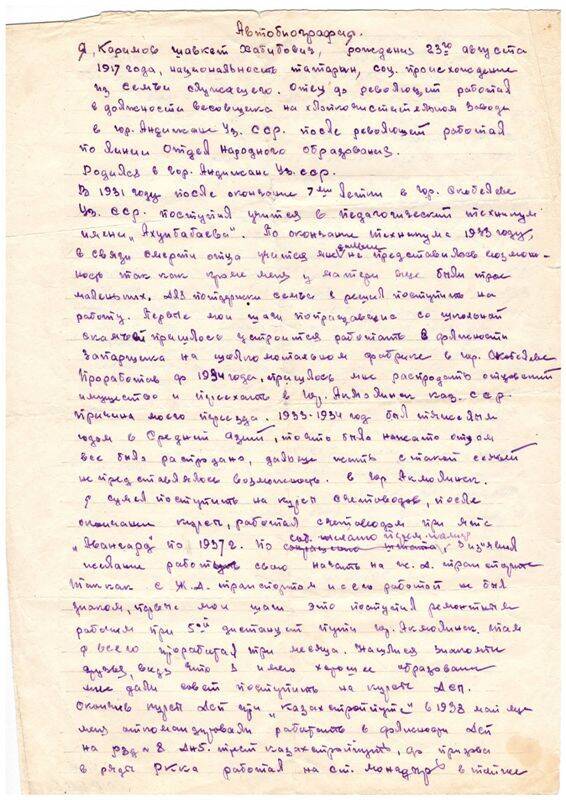 Автобиография.
Я, Каримов Шавкет Хабибович, рождения 23го августа
1917 года, национальность татарин, соц. происхождение
из семьи служащего. Отец до революции работал
в должности весовщика на хлопкочистительном заводе
в гор. Андижане Уз. ССР. после революции работал
по линии Отдел Народного Образования.
Родился в гор. Андижане Уз. ССР.
В 1931 году после окончание 7ми летки в гор. Скобелеве
Уз. ССР. поступил учится в педагогический техникум
имени „Ахунбабаева". По окончание техникума 1933 году,
в связи смерти отца учится мне дальше не представилось возмож-
ность так как кроме меня у матери еще были трое
маленьких. Для поддержки семье я решил поступить на
работу. Первые мои шаги попращавшись со школьной
скамьей пришлось устроится работать в должности
Запарщика на шелкомотальном фабрике в гор. Скобелеве
Проработав до 1934 года, пришлось мне распродать отцовский
имущество и приехать в гор. Акмолинск Каз. ССР.
причина моего переезда. 1933-1934 год был тяжелым
годом в Средней Азий, то что было нажато отцом
все было распродано, дальше жить с такой семьей
не представлялось возможность. в гор Акмолинск.
я сумел поступить на курсы счетоводов, после
окончания курсы, работал счетоводом при
„Авангард" по 1937 г. По соб. желанию сокращению штата, изъявил
желание работу свою начать на ж. д. транспорте
Так как с Ж.Д. транспортом и с его работой не был
знаком, первые мои шаги это поступил ремонтным
рабочим при 5ой дистанции пути гор. Акмолинск. там
я всего проработал три месяца. Нашлися знакомые
друзья, видя что я имею хорошее образование
мне дали совет поступить на курсы ДСП.
Окончив курсы ДСП при „Казахстройпуть" в 1938 май м-це
меня откомандировали работать в должности ДСП
на рзд № 8 трест Казахстройпуть, до призыва
в ряды РККА работал на ст. в